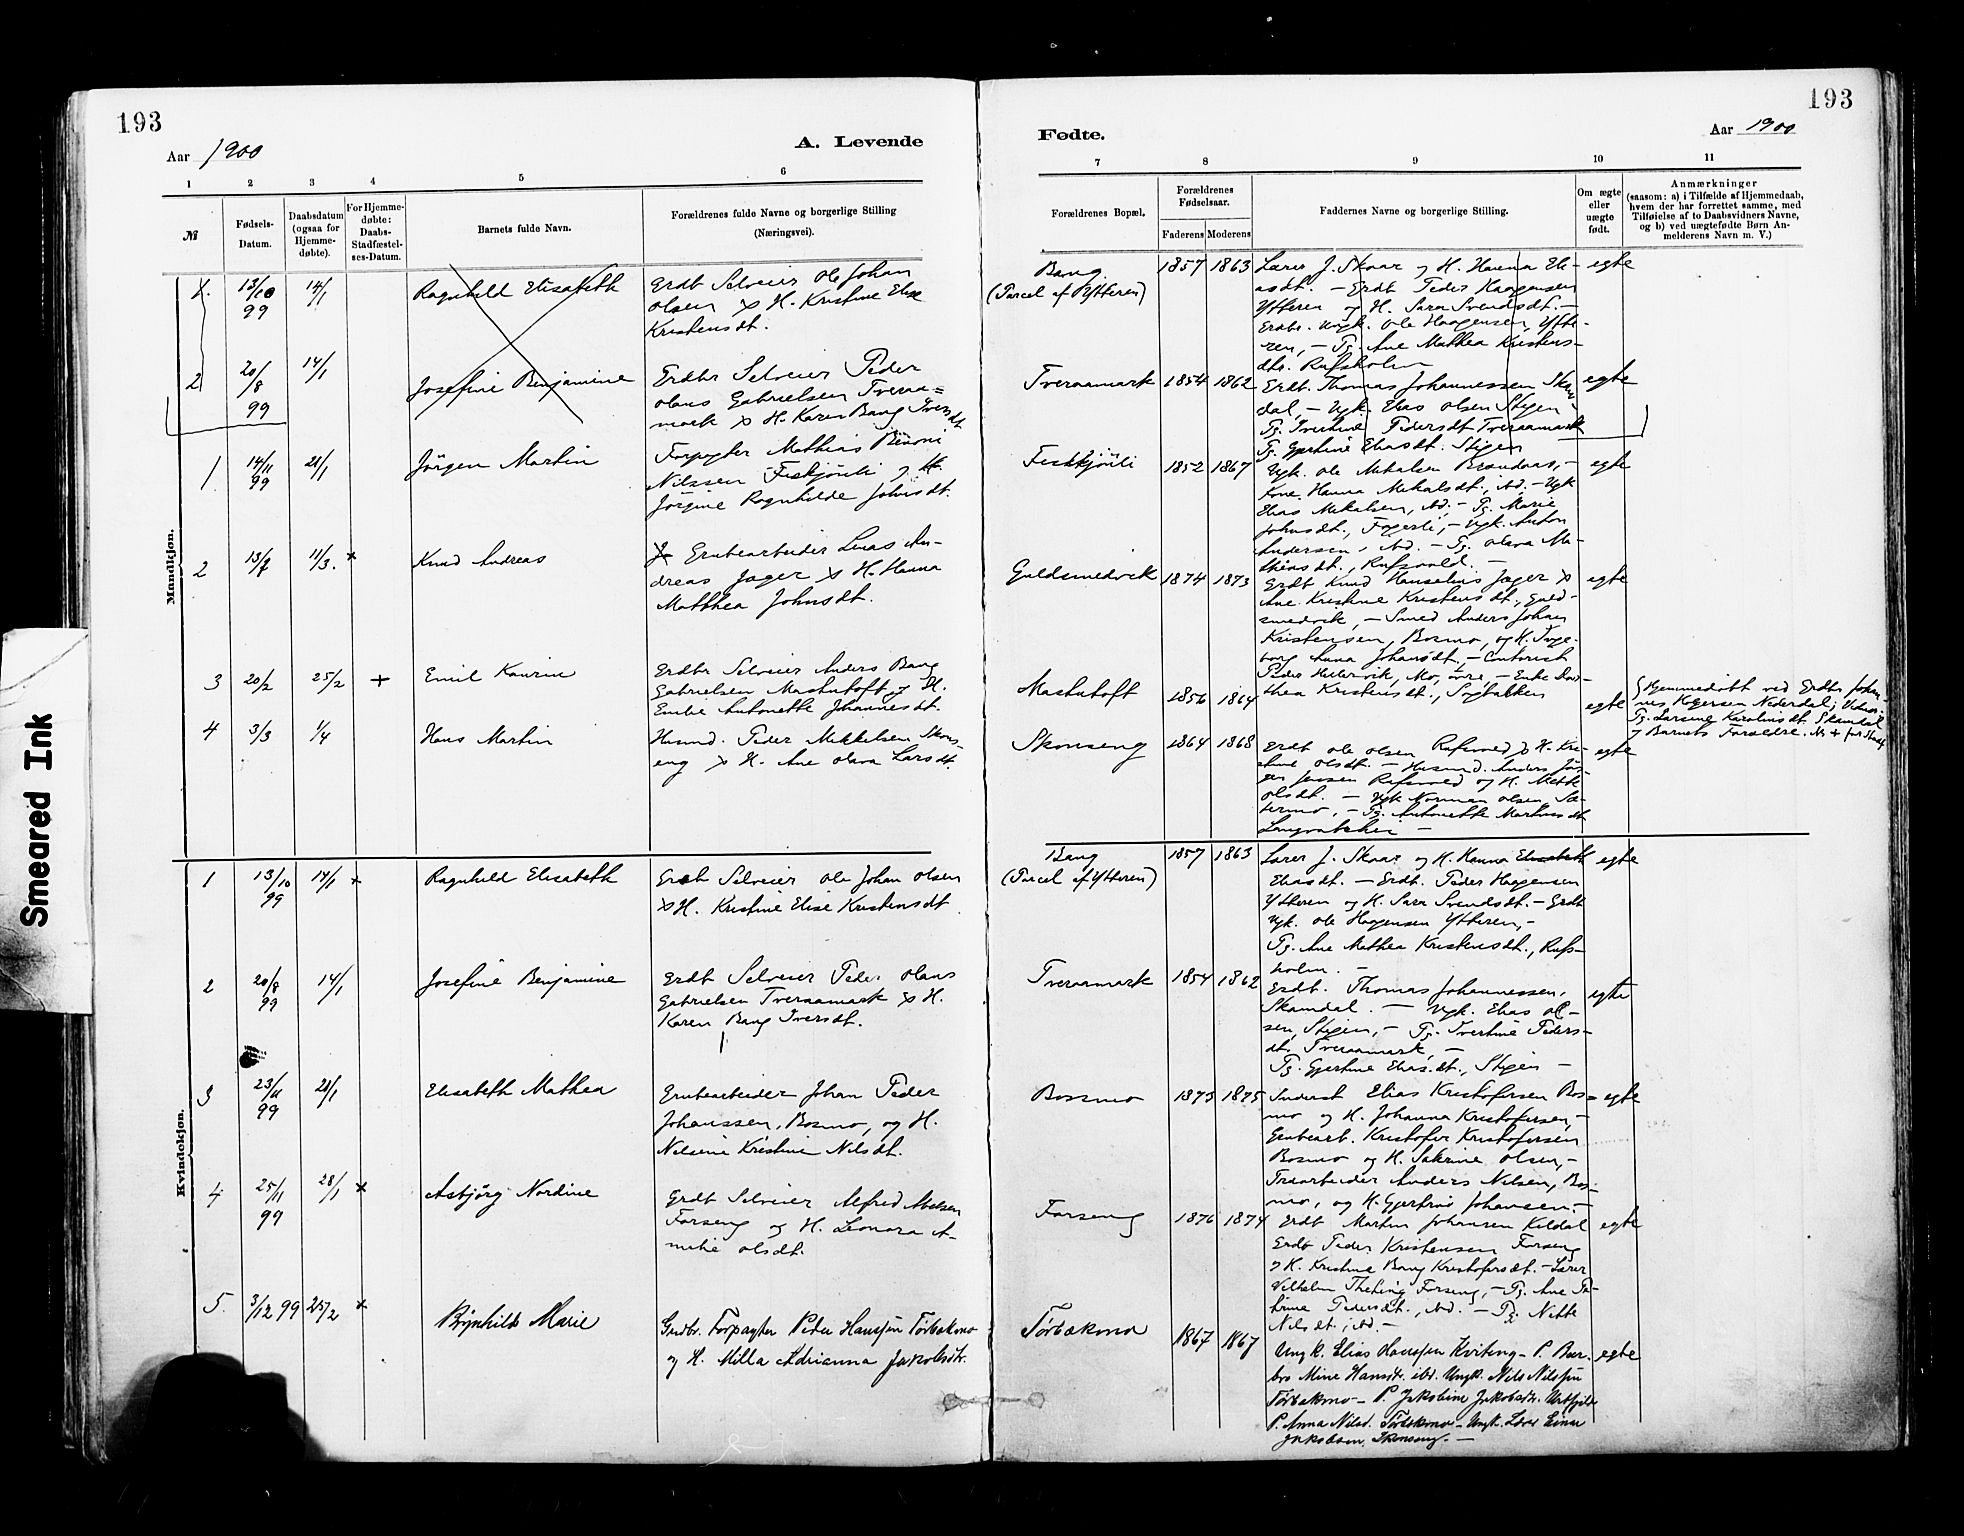 193
Aar 1900
A. Levende
1
2
3
4
5
6
№
Fødsels-
Datum.
Daabsdatum
(ogsaa for
Hjemme-
døbte).
For Hjemme-
døbte:
Daabs-
Stadfæstel-
ses-Datum.
Barnets fulde Navn.
Forældrenes fulde Navne og borgerlige Stilling
(Næringsvei).
Mandkjøn.
1. 13/10 99 14/1 Ragnhild Elisabeth
Grdbr Selveier Ole Johan
Olsen & H. Kristine Elise
Kristensdt.
2 20/8 99 14/1 Josefine Benjamine
Grdbr Selveier Peder
Olaus Gabrielsen Tveraa=
mark & H. Karen Bang Iversdt
1 14/11 99 21/1 Jörgen Martin
Forpagter Mathias Benoni
Nilssen Fiskjönli og H.
Jörgine Ragnhilde Johnsdt.
2 13/7 11/3. × Knud Andreas
Grubearbeider Lucas An-
dreas Jager & H. Hanna
Matthea Johnsdt.
3 20/2 25/2 + Emil Kaurin
Grdbr Selveier Anders Bang
Gabrielsen Mastutoft og H.
Emilie Antonette Johannesdt.
4 3/3 1/4 Hans Martin
Husmd. Peder Mikkelsen Skons-
eng & H. Ane Olava Larsdt.
Kvindekjøn.
1 13/10 99 14/1 + Ragnhild Elisabeth
Grdb Selveier Ole Johan Olsen
& H. Kristine Elise Kristensdt
2 20/8 99 14/1 Josefine Benjamine
Grdb Selveier Peder Olaus
Gabrielsen Tveraamark & H.
Karen Bang Iversdt.
3 23/11 99 21/1 Elisabeth Mathea
Grubearbeider Johan Peder
Johanssen, Bosmo, og H.
Nilsine Kristine Nilsdt.
4 25/11 99 28/1 × Asbjörg Nordine
Grdb Selveier Alfred Nilsen
Forseng og H. Leonora A-
melie Olsdt.
5. 3/12 99 25/2 × Brynhild Marie
Grdbr. Forpagter Peder Hanssen Törbækmo
og H. Milla Adrianna Jakobsdtr.
193
Fødte.
Aar 1900
7
8
9
10
11
Forældrenes Bopæl.
Forældrenes
Fødselsaar.
Faderens
Moderens
Faddernes Navne og borgerlige Stilling.
Om ægte
eller
uægte
født.
Anmærkninger
(saasom: a) i Tilfælde af Hjemmedaab,
hvem der har forrettet samme, med
Tilføielse af to Daabsvidners Navne,
og b) ved uægtefødte Børn An-
melderens Navn m. V.)
Bang
(Parcel af Ytteren)
1857 1863
Lærer J. Skaar og H. Hanna Eli-
asdt. — Grdb Peder Haagensen
Ytteren og H. Sara Svendsdt. —
Grdbr. Ungk. Ole Haagensen, Ytte-
ren, — Pg. Ane Mathea Kristens-
dtr. Rufsholm
egte
Tveraamark 1854 1862
Grdb. Thomas Johannessen Skam
dal, — Ugk. Elias Olsen Stigen
Pg. Ivertine Pedersdt Tveraamark
Pg. Gjertine Eliasdt. Stigen
egte
Fiskkjönli 1852 1867
Ugk. Ole Mikalsen Brændaas, —
Kone Hanna Mikalsdt., ibd. — Ugk
Elias Mikalsen, ibd, — Pg. Marie
Johnsdt., Fagerli, — Ugk. Anton
Andersen, ibd. — Pg. Olava Ma-
thiasdt., Rufsvold. —
egte
Guldsmedvik 1874 1873
Grdb Knud Hanselius Jager &
Ane Kristine Kristensdt., Guld-
smedvik, — Smed Anders Johan
Kristensen, Bosmo, og H. Inge-
borg Anna Johansdt, — Contorist
Peder Hetervik, Mo, övre, — Enke Do-
thea Kristensdt., Sagbakken
egte
Mastutoft 1856 1864
egte
Hjemmedöbt ved Grdbr Johan-
nes Holgersen Nederdal; Vidner
Pg. Larsine Karolinsdt. Skamdal
& Barnets Forældre.
Skonseng 1864 1868
Grdb Ole Olsen Rufsmoed & H. Kri-
stine Olsdt. — Husmd. Anders Jör-
gen Jenssen Rufsmoed og H. Mette
Olsdt. — Ugk Norman Olsen Sæ-
termo, — Pg. Antonette Martinsdt
Langvatshei —
egte
Bang
(Parcel af Ytteren)
1857 1863
Lærer J. Skaar og H. Hanna Elisabeth
Eliasdt. — Grdb. Peder Haagensen
Ytteren og H. Sara Svendsdt. — Grdb
Ugk. Ole Haagensen Ytteren, —
Pg. Ane Mathea Kristensdt., Rufs-
holm. —
egte
Tveraamark 1854 1862
Grdb. Thomas Johannessen,
Skamdal. — Ugk. Elias Ol-
sen, Stigen, — Pg. Ivertine Peders-
dt. Tveraamark, —
Pg. Gjertine Eliasdt., Stigen —
egte
Bossmo 1873 1875
Inderst Elias Kristofersen Bos-
mo og H. Johanna Kristofersen, —
Grubearb. Kristofer Kristofersen
Bosmo og H. Sakrine Olsen, —
Træarbeider Anders Nilsen, Bos-
mo, og H. Gjertrud Johansen. —
egte
Forseng 1876 1874
Grdb Martin Johansen Kildal
Grdb Peder Kristensen Forseng
& H. Kristine Bang Kristofersdt. — Lærer
Vilhelm Thesting Forseng, — Pg. Ane Ka-
trine Pedersdt., ibd. — Pg. Nette
Nilsdt., ibd. —
egte
Törbækmo 1867 1867
Ungk. Elias Hanssen Kviting — P. Bar-
bro Mine Hansdt. ibd. Ungk. Nils Nilssen
Törbækmo — P. Jakobine Jakobsdt. Urtfjeld
P. Anna Nilsd. Törbækmo — Ungk. Lærer Einar
Jakobsen, Skonseng. —
egte
Smeared Ink